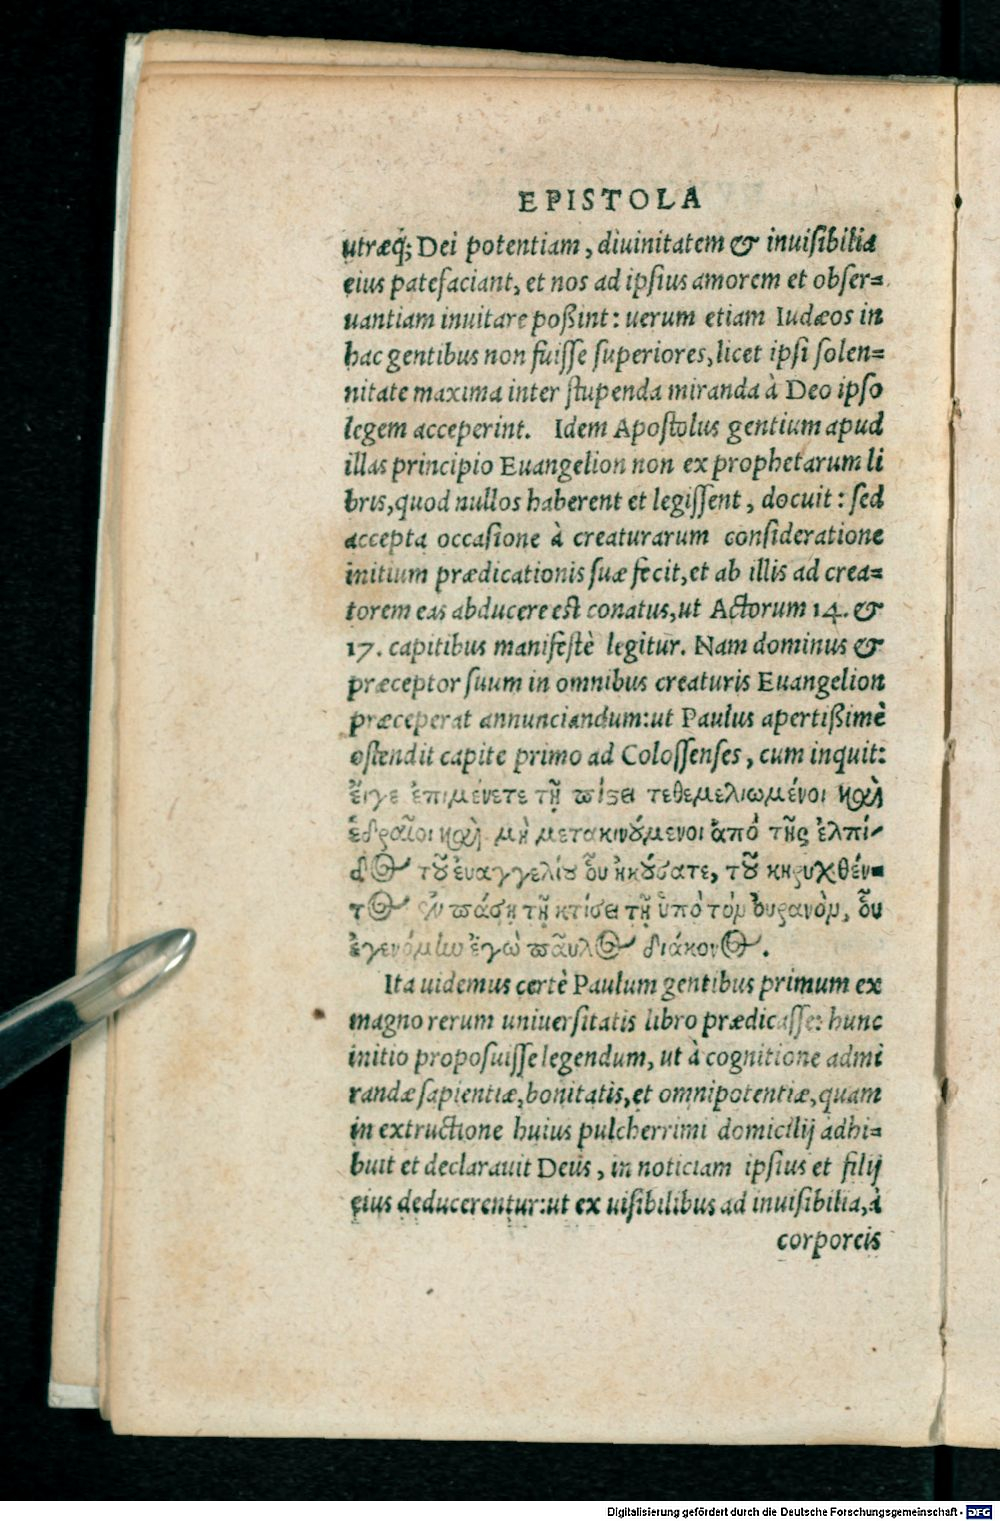 EPISTOLA
utræq; Dei potentiam, diuinitatem & inuisibilia
eius patefaciant, et nos ad ipsius amorem et obser=
uantiam inuitare poßint: uerum etiam Iudæos in
hac gentibus non fuisse superiores, licet ipsi solen=
nitate maxima inter stupenda miranda à Deo ipso
legem acceperint. Idem Apostolus gentium apud
illas principio Euangelion non ex prophetarum li
bris, quod nullos haberent et legissent, docuit: sed
accepta occasione à creaturarum consideratione
initium prædicationis suæ fecit, et ab illis ad crea=
torem eas abducere est conatus, ut Actorum 14. &
17. capitibus manifestè legitur. Nam dominus &
præceptor suum in omnibus creaturis Euangelion
præceperat annunciandum: ut Paulus apertißimè
ostendit capite primo ad Colossenses, cum inquit:
ἔιγε ἐπιμένετε τῇ πίστει τεθεμελιωμένοι καὶ
ἑδραῖοι καὶ μὴ μετακινούμενοι ἀπὸ τῆς ἐλπί-
δος τοῦ ἐυαγγελίου οὗ ἠκούσατε, τοῦ κηρυχθέν=
τος ἐν πάσῃ τῇ κτίσει τῇ ὑπὸ τὸν ὀυρανὸν, οὗ
ἐγενόμην ἐγὼ παῦλος διάκονος.
Ita uidemus certè Paulum gentibus primum ex
magno rerum uniuersitatis libro prædicasse: hunc
initio proposuisse legendum, ut à cognitione admi
randæ sapientiæ, bonitatis, et omnipotentiæ, quam
in extructione huius pulcherrimi domicilij adhi=
buit et declarauit Deus, in noticiam ipsius et filij
eius deducerentur: ut ex uisibilibus ad inuisibilia, à
corporeis
Digitalisierung gefördert durch die Deutsche Forschungsgemeinschaft - DFG